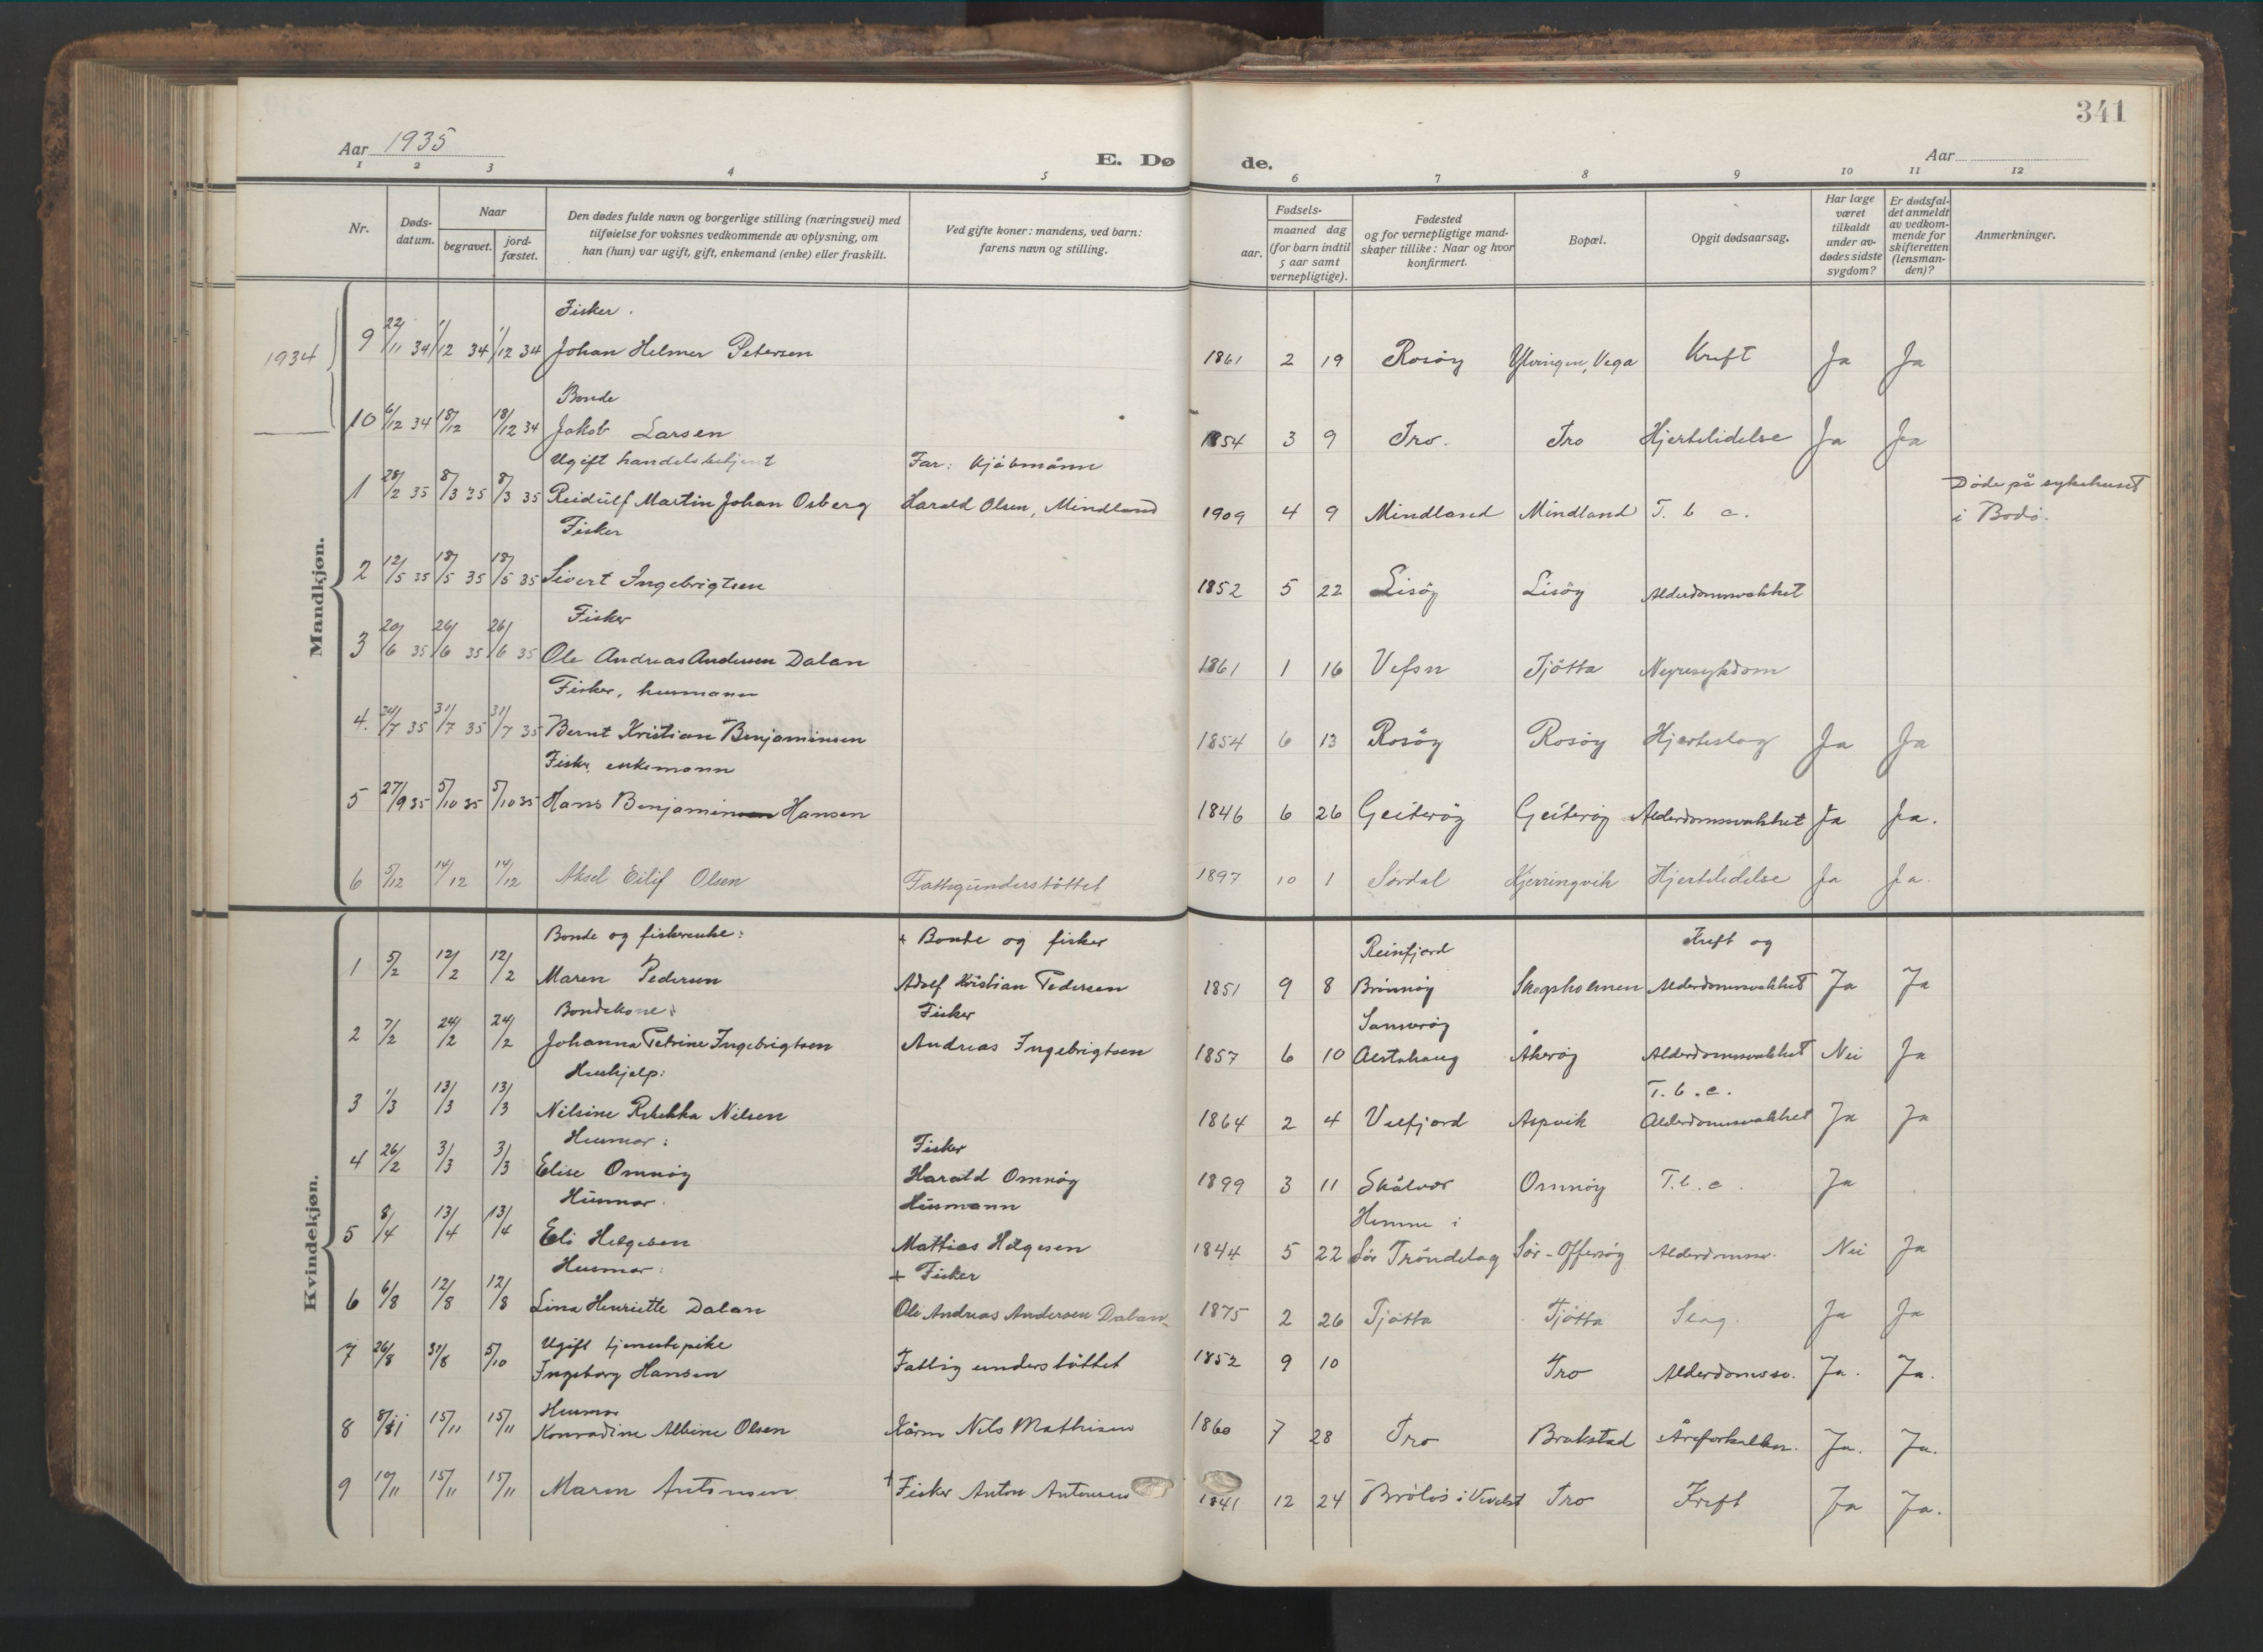 341
Aar 1935
E. Dø de.
Aar
1 2 3 4 5 6 7 8 9 10 11 12
Nr.
Døds-datum.
Naar
begravet.
jord-fæstet.
Den dødes fulde navn og borgerlige stilling (næringsvei) med
tilføielse for voksnes vedkommende av oplysning, om
han (hun) var ugift, gift, enkemand (enke) eller fraskilt.
Ved gifte koner: mandens, ved barn:
farens navn og stilling.
Fødsels-
aar.
maaned dag
(for barn indtil
5 aar samt
vernepligtige).
Fødested
og for vernepligtige mand-
skaper tillike: Naar og hvor
konfirmert.
Bopæl.
Opgit dødsaarsag.
Har læge
været
tilkaldt
under av-
dødes sidste
sygdom?
Er dødsfal-
det anmeldt
av vedkom-
mende for
skifteretten
(lensman-
den)?
Anmerkninger.
Mandkjøn.
1934
Fisker.
9 22/11 34 1/12 34 1/12 34 Johan Helmer Petersen 1861 2 19 Rosøy Ylvingen, Vega Kreft Ja Ja
Bonde
10 6/12 34 18/12 18/12 34 Jakob Larsen 1854 3 9 Tro. Tro Hjertelidelse Ja Ja
Ugift handelsbetjent Far: Kjøbmann
1 28/2 35 8/3 35 8/3 35 Reidulf Martin Johan Osberg Harald Olsen, Mindland 1909 4 9 Mindland Mindland T. b c. Døde på sykehuset
i Bodø.
Fisker
2 12/5 35 18/5 35 18/5 35 Sivert Ingebrigtsen 1852 5 22 Lisøy Lisøy Alderdomsvakhet
Fisker
3 20/6 35 26/6 35 26/6 35 Ole Andreas Andersen Dalan 1861 1 16 Vefsn Tjøtta Nyresykdom
Fisker, husmann
4. 24/7 35 31/7 35 31/7 35 Bernt Kristian Benjaminsen 1854 6 13 Rosøy Rosøy Hjerteslag Ja Ja
Fisker, enkemann
5 27/9 35 5/10 35 5/10 35 Hans Benjaminsen Hansen 1846 6 26 Geiterøy Geiterøy Alderdomsvakhet Ja Ja.
6 5/12 14/12 14/12 Aksel Eilif Olsen Fattigunderstøttet 1897 10 1 Sørdal Kjerringvik Hjertelidelse Ja Ja.
Kvindekjøn.
Bonde og fiskerenke: + Bonde og fisker Reinfjord Kreft og
1 5/2 12/2 12/2 Maren Pedersen Adolf Kristian Pedersen 1851 9 8 Brønnøy Skogsholmen Alderdomsvakhet Ja Ja
Bondekone: Fisker
2 7/2 24/2 24/2 Johanna Petrine Ingebrigtsen Andreas Ingebrigtsen 1857 6 10 Alstahaug Åkerøy Alderdomsvakhet Nei Ja
Hushjelp: T. b. c.
3 1/3 13/3 13/3 Nilsine Rebekka Nilsen 1864 2 4 Velfjord Aspvik Alderdomsvakhet Ja Ja
Husmor: Fisker
4 26/2 3/3 3/3 Elise Omnøy Harald Omnøy 1899 3 11 Skålvær Omnøy T. b. c. Ja
Husmor. Husmann Hemne i
5 8/4 13/4 13/4 Eli Helgesen Mattias Helgesen 1844 5 22 Sør Trøndelag Sør-Offersøy Alderdomsv. Nei Ja
Husmor: + Fisker
6 6/8 12/8 12/8 Lina Henriette Dalan Ole Andreas Andersen Dalan 1875 2 26 Tjøtta Tjøtta Slag. Ja Ja
Ugift tjenestepike
7 26/8 31/8 5/10 Ingeborg Hansen Fattig understøttet 1852 9 10 Tro Alderdomssv. Ja. Ja.
Husmor
8 8/11 15/11 15/11 Konradine Albine Olsen Nils Mathisen 1860 7 28 Tro Brakstad Åreforkalkn. Ja. Ja.
9 10/11 15/11 15/11 Maren Antonsen + Fisker Anton Antonsen 1841 12 24 Tro Kreft Ja Ja.